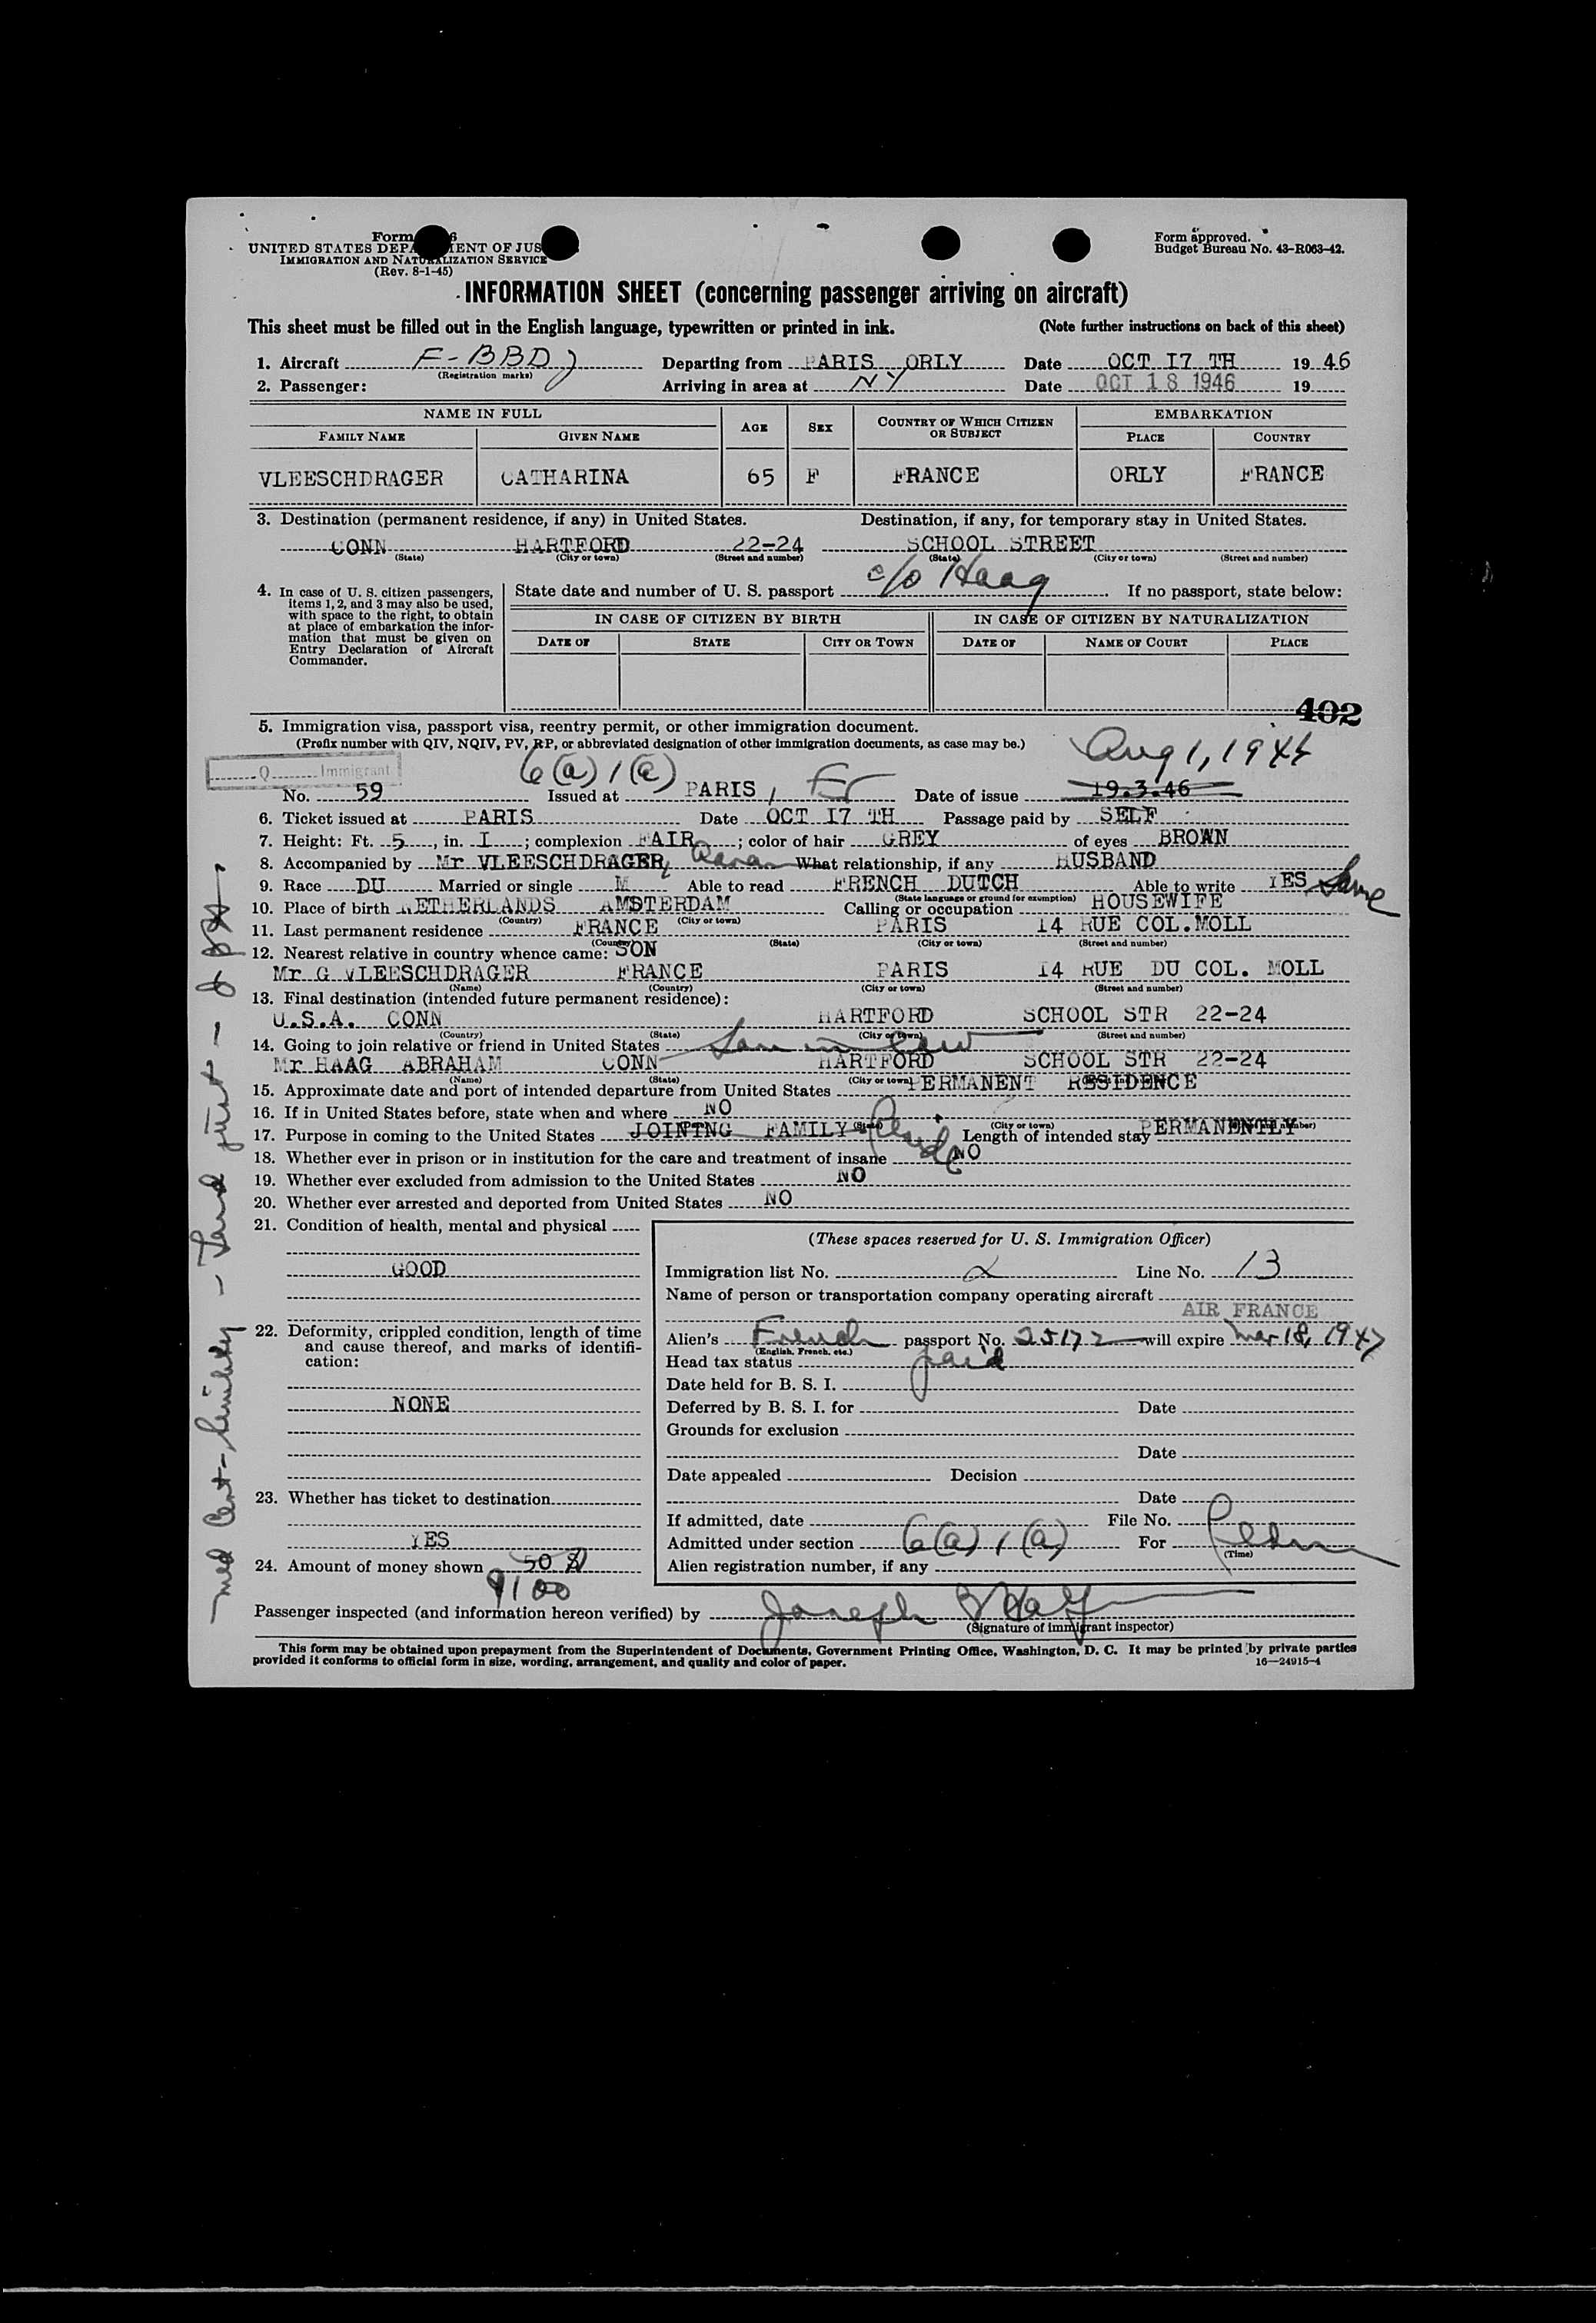 Form
UNITED STATES DEPARTMENT OF JUS
IMMIGRATION AND NATURALIZATION SERVICE
(Rev. 8-1-45)
Form approved.
Budget Bureau No. 43-R063-42.
INFORMATION SHEET (concerning passenger arriving on aircraft)
This sheet must be filled out in the English language, typewritten or printed in ink. (Note further instructions on back of this sheet)
1. Aircraft F-BBDJ Departing from PARIS ORLY Date OCT I7 TH 19 46
(Registration marks)
2. Passenger: Arriving in area at NY Date OCT 18 1946 19
NAME IN FULL AGE SEX COUNTRY OF WHICH CITIZEN OR SUBJECT EMBARKATION
FAMILY NAME GIVEN NAME PLACE COUNTRY
VLEESCHDRAGER CATHARINA 65 F FRANCE ORLY FRANCE
3. Destination (permanent residence, if any) in United States. Destination, if any, for temporary stay in United States.
CONN HARTFORD 22-24 SCHOOL STREET
(State) (City or town) (Street and number) (State) (City or town) (Street and number)
c/o Haag
4. In case of U. S. citizen passengers, items 1, 2, and 3 may also be used, with space to the right, to obtain at place of embarkation the information that must be given on Entry Declaration of Aircraft Commander.
State date and number of U. S. passport If no passport, state below:
IN CASE OF CITIZEN BY BIRTH IN CASE OF CITIZEN BY NATURALIZATION
DATE OF STATE CITY OR TOWN DATE OF NAME OF COURT PLACE
402
5. Immigration visa, passport visa, reentry permit, or other immigration document.
(Prefix number with QIV, NQIV, PV, RP, or abbreviated designation of other immigration documents, as case may be.)
Q Immigrant 6(a) 1(a) Aug 1, 1946
No. 59 Issued at PARIS, Fr Date of issue 19.3.46
6. Ticket issued at PARIS Date OCT I7 TH Passage paid by SELF
7. Height: Ft. 5, in. I; complexion FAIR; color of hair GREY of eyes BROWN
8. Accompanied by Mr VLEESCHDRAGER, What relationship, if any HUSBAND
9. Race DU Married or single M Able to read FRENCH DUTCH Able to write YES Same
(State language or ground for exemption)
10. Place of birth NETHERLANDS AMSTERDAM Calling or occupation HOUSEWIFE
(Country) (City or town)
11. Last permanent residence FRANCE PARIS I4 RUE COL.MOLL
(Country) (State) (City or town) (Street and number)
12. Nearest relative in country whence came: SON
Mr G VLEESCHDRAGER FRANCE PARIS I4 RUE DU COL. MOLL
(Name) (Country) (City or town) (Street and number)
13. Final destination (intended future permanent residence):
U.S.A. CONN HARTFORD SCHOOL STR 22-24
(Country) (State) (City or town) (Street and number)
14. Going to join relative or friend in United States Son in law
Mr HAAG ABRAHAM CONN HARTFORD SCHOOL STR 22-24
(Name) (State) (City or town)
15. Approximate date and port of intended departure from United States PERMANENT RESIDENCE
16. If in United States before, state when and where NO
(State) (City or town) (Street and number)
17. Purpose in coming to the United States JOINING FAMILY Length of intended stay PERMANENTLY
18. Whether ever in prison or in institution for the care and treatment of insane NO
19. Whether ever excluded from admission to the United States NO
20. Whether ever arrested and deported from United States NO
21. Condition of health, mental and physical
GOOD
22. Deformity, crippled condition, length of time and cause thereof, and marks of identification:
NONE
23. Whether has ticket to destination
YES
24. Amount of money shown 50 $
9100
(These spaces reserved for U. S. Immigration Officer)
Immigration list No. 2 Line No. 13
Name of person or transportation company operating aircraft
AIR FRANCE
Alien's French passport No. 25172 will expire Mar 18, 1947
(English, French, etc.)
Head tax status paid
Date held for B. S. I.
Deferred by B. S. I. for Date
Grounds for exclusion
Date
Date appealed Decision
Date
If admitted, date File No.
Admitted under section 6(a) 1(a) For Perm
(Time)
Alien registration number, if any
Passenger inspected (and information hereon verified) by Joseph
(Signature of immigrant inspector)
This form may be obtained upon prepayment from the Superintendent of Documents, Government Printing Office, Washington, D. C. It may be printed by private parties
provided it conforms to official form in size, wording, arrangement, and quality and color of paper. 16—24915-4
med Cert - Senility